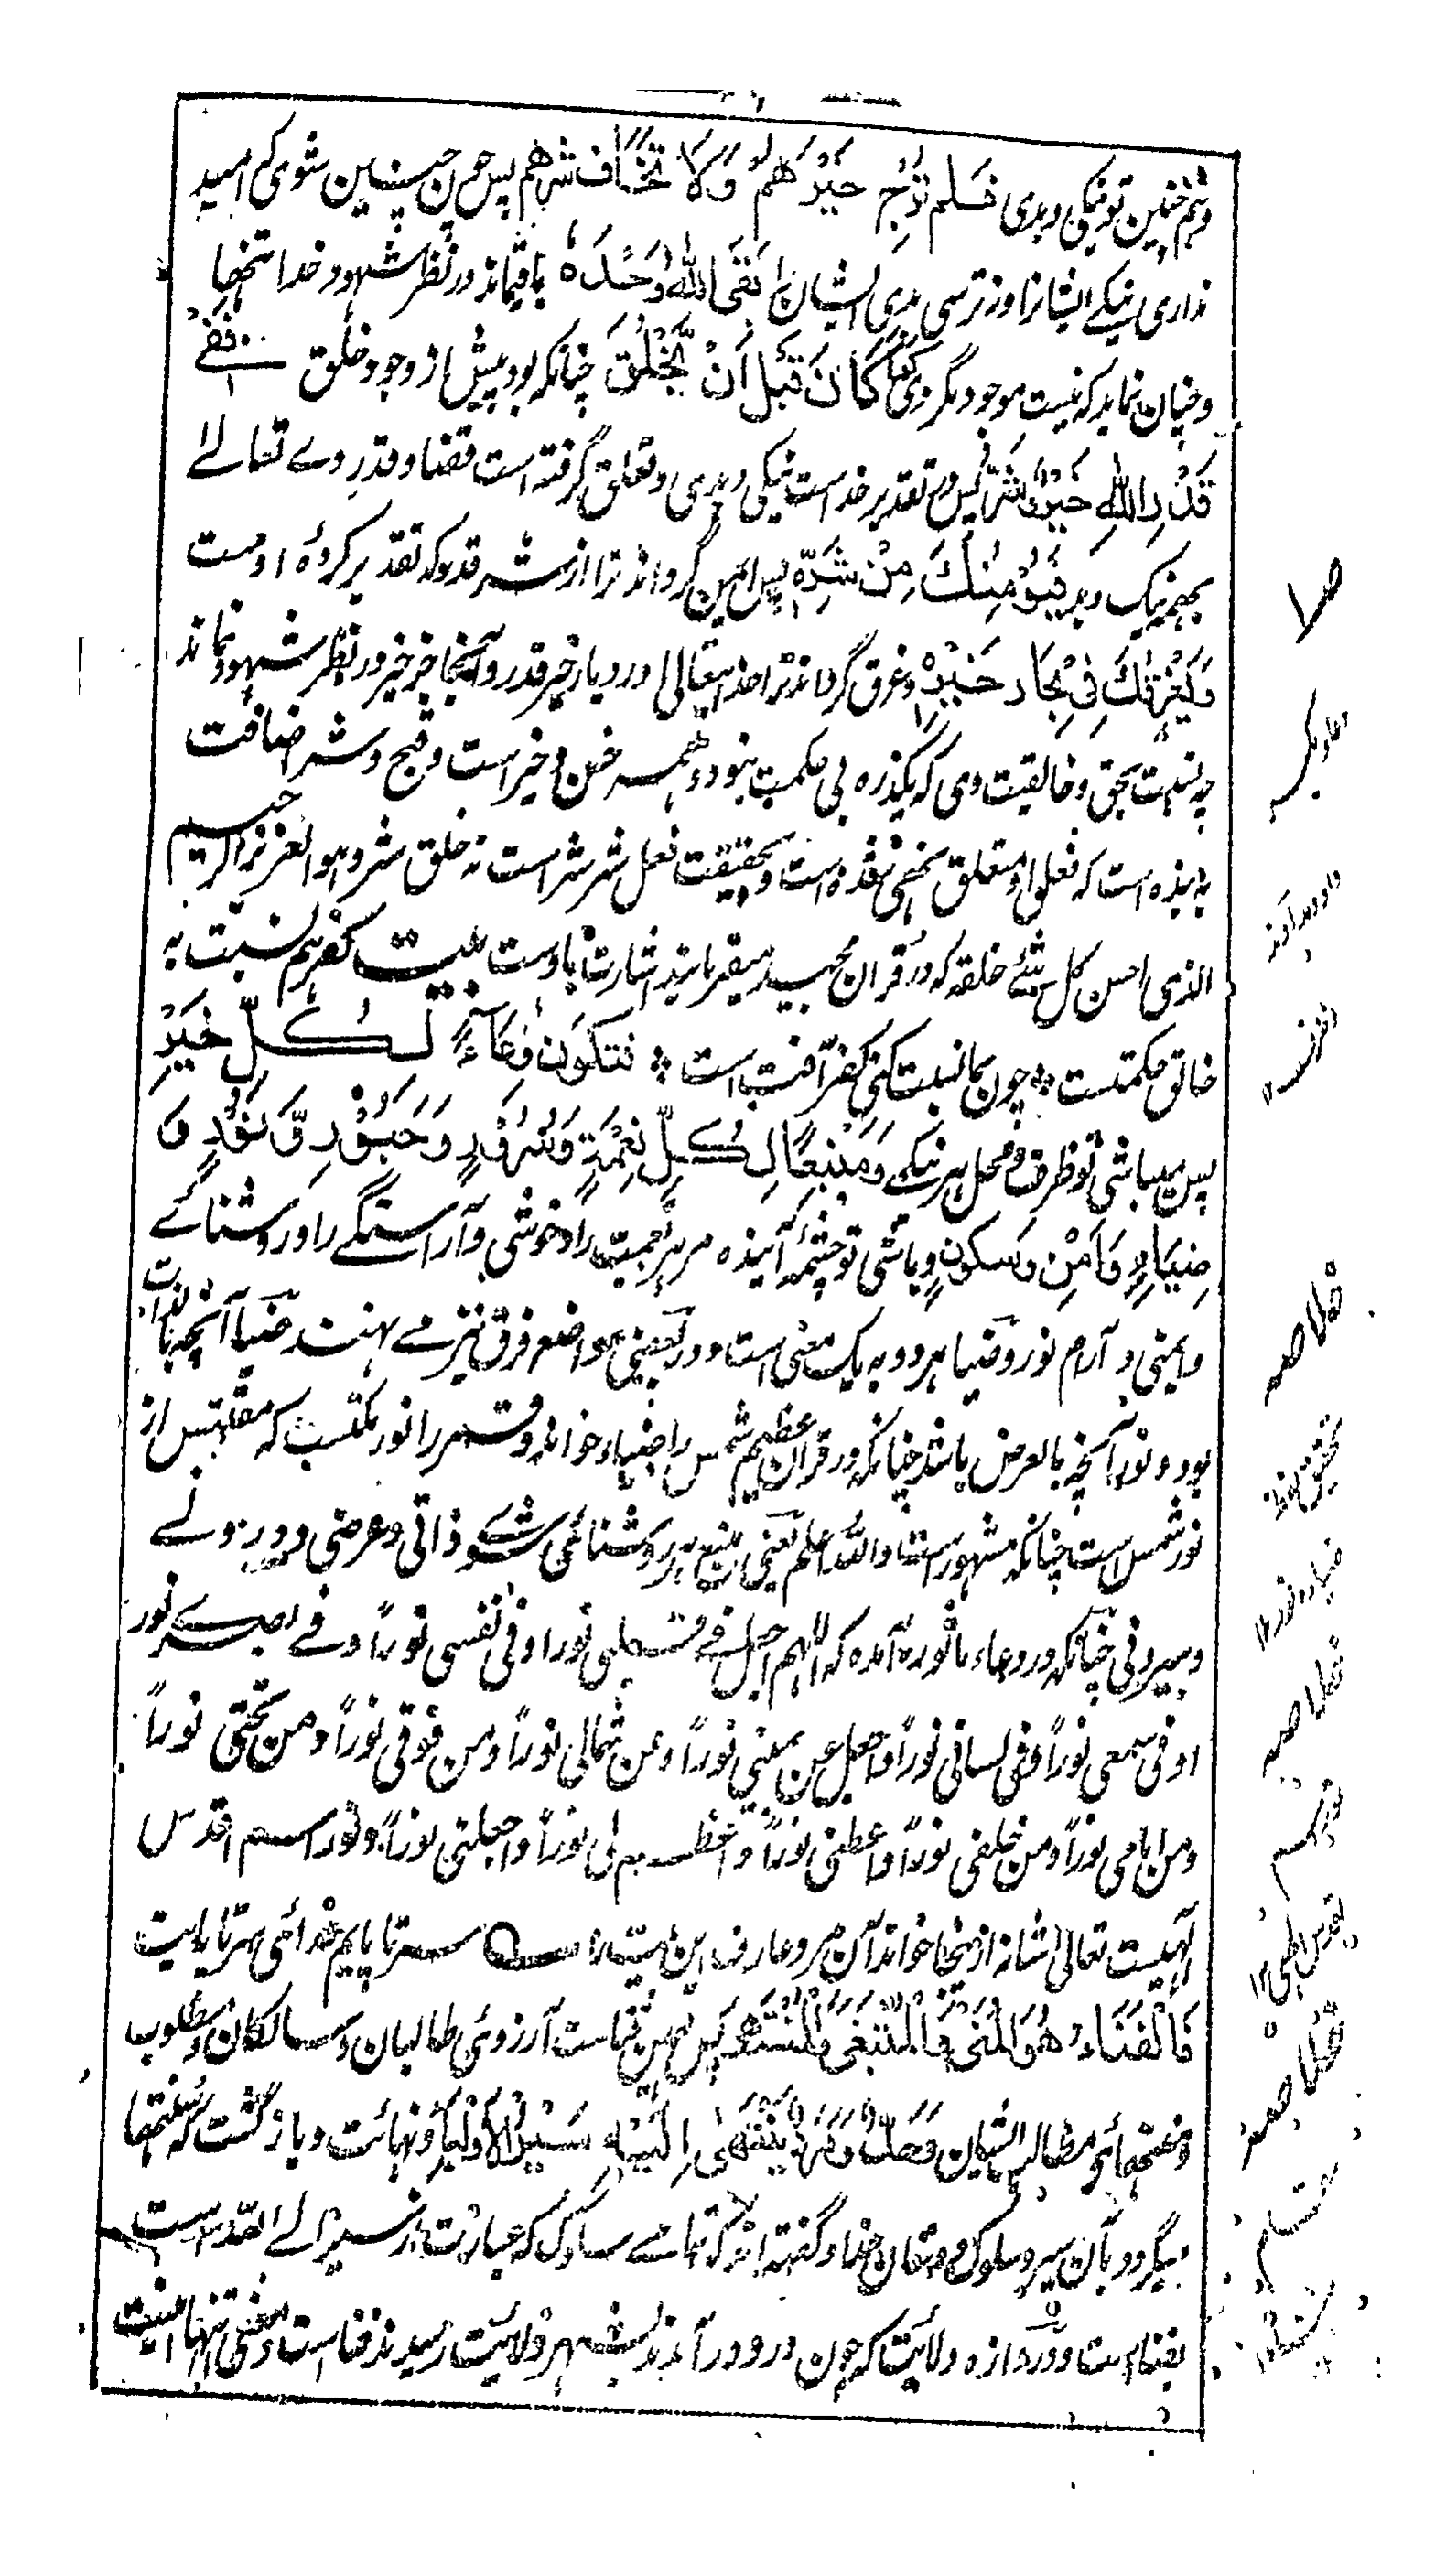 و همچنین تو نیکی و بدی فَلَمْ تَرْجُ خَيْرَهُمْ وَلَا تَخَافُ شرهم پس چون چنین شوی که امید
نداری نیکی ایشانرا و نترسی بدی ایشان را بَقِیَ اللهُ وَحْدَهُ باقیماند در نظر شهود خدا تنها
و چنان نماید که نیست موجود دیگر وی كَمَا كَانَ قَبْلَ اَنْ يَّخْلُقَ چنانکه بود پیش از وجود خلق ففی
قَدَرِ اللهِ خَيْرٌ وَّشَرٌّ پس در تقدیر خداست نیکی و بدی و تعلق گرفته است قضا و قدر وے تعالے
بهمه نیک و بد فَيُؤْمِنُكَ مِنْ شَرِّهٖ پس ایمن گرداند ترا از شر قدر که تقدیر کردهٔ اوست
وَيُغْرِقُكَ فِيْ بِحَارِ خَيْرِهٖ و غرق گرداند ترا خدایتعالی در دریای خیر قدر و آنجا جز خیر در نظر شهود نماند
چه نسبت بحق و خالقیت وی که یکذره بی حکمت نبود همه حسن و خیر است و قبح و شر اضافت
به بنده است که فعل او متعلق نهی شده است و بحقیقت فعل شر شر است نه خلق شر و هو العزیز الرحیم
الذی احسن کل شئے خلقه که در قرآن مجید میفرماید اشارت باوست بیت کفر هم نسبت به
خالق حکمتست ؛ چون بما نسبت کنی کفر آفتست ؛ فَتَكُوْنَ وِعَاءً لِكُلِّ خَيْرٍ
پس میباشی تو ظرف و محل هر نیکے وَمَنْبَعًا لِكُلِّ نِعْمَةٍ وَسُرُوْرٍ وَحُبُوْرٍ وَّنُوْرٍ وَ
ضِيَاءٍ وَاَمْنٍ وسکونٍ و باشی تو چشمهٔ آینده مر هر نعمت را و خوشی و آراستگے را و روشنائے
و ایمنی و آرام نور و ضیا هر دو به یک معنی است و در بعضی مواضع فرق نیز مے نهند ضیا آنچه بالذات
بود و نور آنچه بالعرض باشد چنانکه در قرآن عظیم شمس را ضیاء خوانده و قمر را نور مکتسب که مقتبس از
نور شمس است چنانکه مشهور است والله اعلم یعنی منبع هر روشنائی شوے ذاتی و عرضی و درونے
و بیرونی چنانکه در دعاء ماثوره آمده که اللهم اجعل فے قلبی نورا وفی نفسی نوراً وفے بصرے نور
اوفی سمعی نوراً وفی لسانی نوراً واجعل عن یمینی نوراً وعن شمالی نوراً ومن فوقی نوراً ومن تحتی نوراً
ومن امامی نوراً ومن خلفی نوراً واعطنی نوراً واعظم لی نوراً واجعلنی نوراً و نور اسم اقدس
الهیست تعالی شانه ازینجا خواند آن مرد عارف این بیت را سرتا پایم فدای سرتا پایت
فَالْفَنَاءُ هُوَ الْمُنٰى وَالْمُبْتَغٰى وَالْمُنْتَهٰى پس همین فناست آرزوئی طالبان و سالکان و مطلوب
و منتهائے مطالب ایشان وَحَدٌّ وَمَرَدٌّ يَنْتَهِيْ اِلَيْهِ سَيْرُ الْاَوْلِيَاءِ و نهایت و باز گشت که منتها
میگردد بآن سیر و سلوک دوستان خدا و گفته اند که تمامے سلوک که عبارت از سیر الے الله است
بفنا است و دروازه ولایت که چون درو درآمدند بشهر ولایت رسیدند فنا است و معنی انتها اینست
خلاصه
تحقیق لفظ
ضیاء و نور ۱۲
خلاصه
نور اسم
اقدس الهی ۱۲
خلاصه